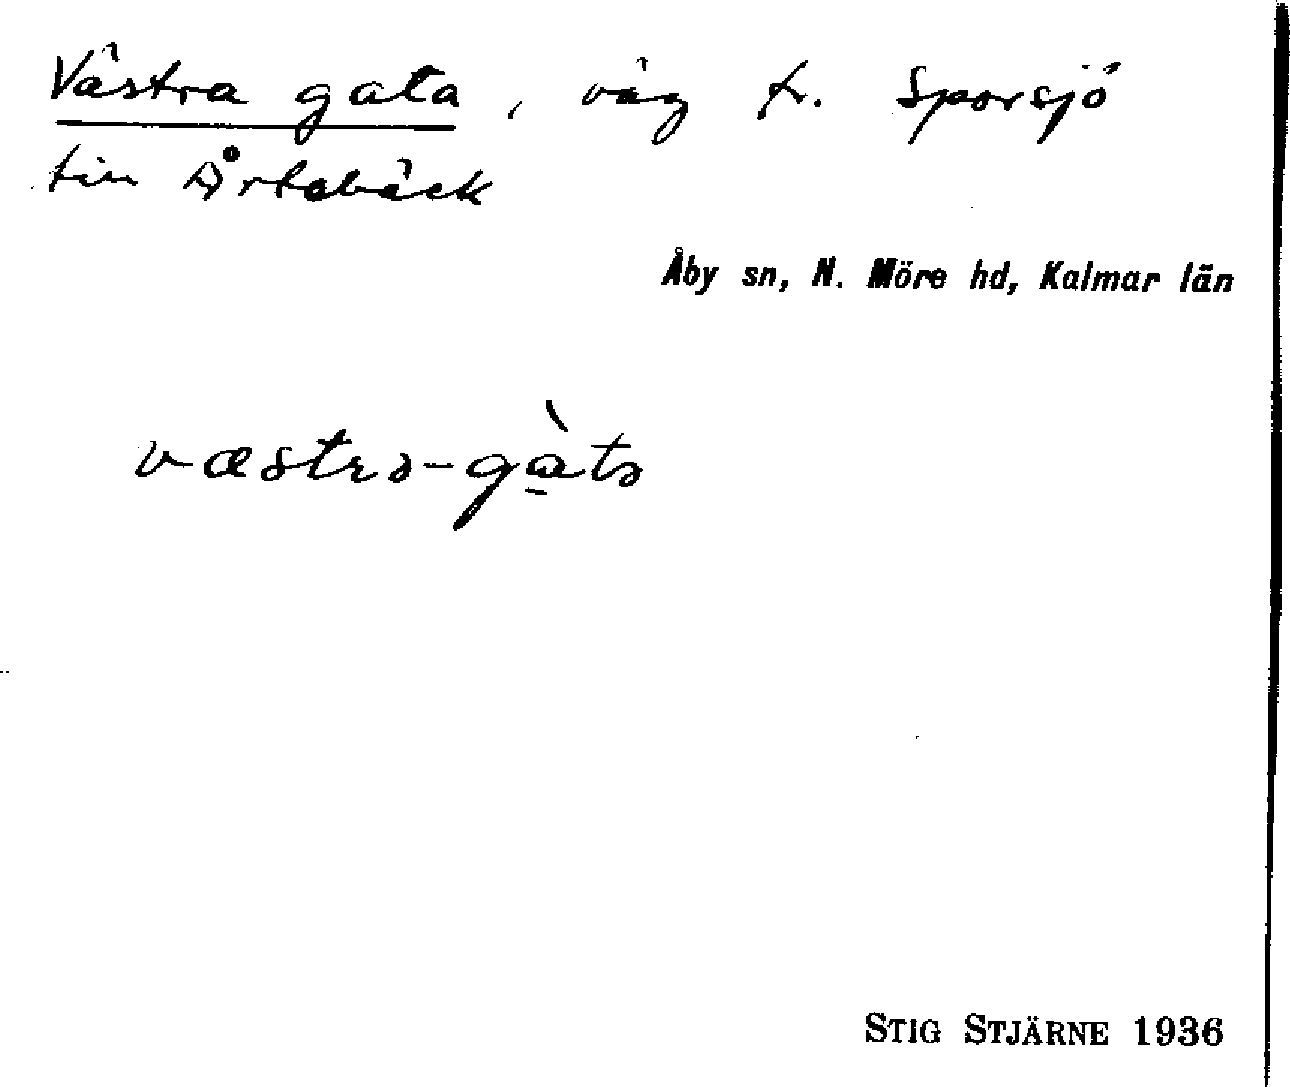 Västra gata, väg fr. Sporsjö
till Årtebäck
Åby sn, N. Möre hd, Kalmar län
væstrə-gàtə
STIG STJÄRNE 1936